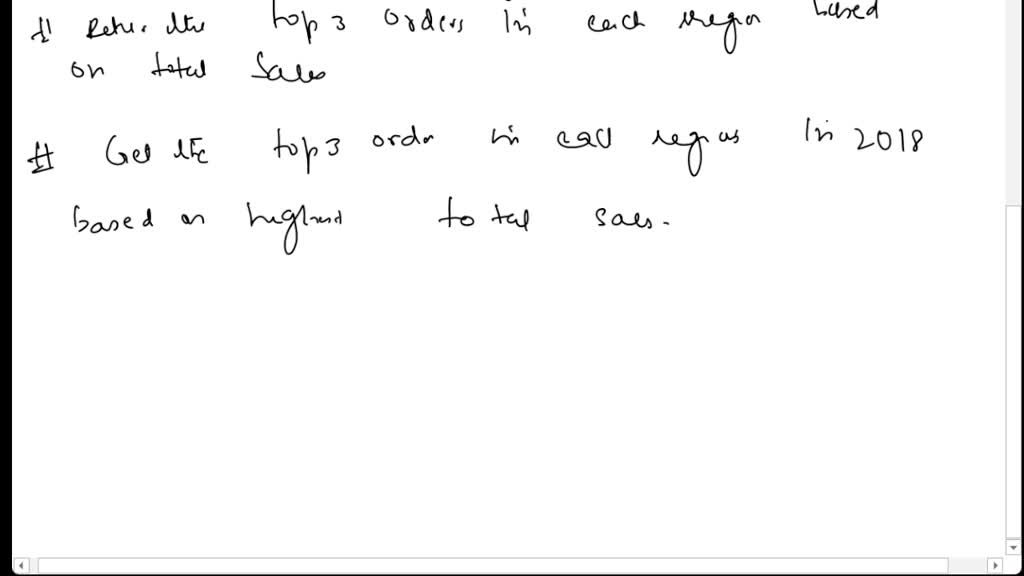 # Return the top 3 orders in each region based
on total Sales
# Get the top 3 order in each regions in 2018
based on highest total sales.